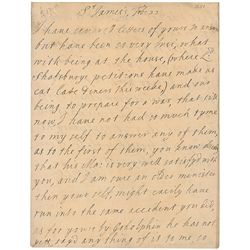 St James's, Feb: 22
I have severall letters of yours to answer
but have been so very busy, what
with being at the house, (where Ld
Shaftsbury's petition have made no
this weeke) and one
being to prepare for a war, that till
now, I have not had so much tyme
to my self to answer any of them,
as to the first of them, you know
that his Ma: is very well satisfyd with
you, and I am sure an older minister
then your self, might easily have
run into the same accident you did,
as for yours by Godolphin he has not
yett sayd any thing of it to me, so